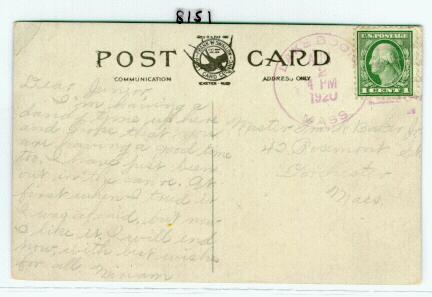 8151
POST CARD
COMMUNICATION
ADDRESS ONLY
U.S. POSTAGE
1 CENT 1
2
4 PM
1920
MASS
Dear Junior,
I'm having a
dandy time up here
and hope that you
are having a good time
too. I have just been
out in the canoe. At
first when I tried it
I was afraid, but now
I like it. I will end
now with best wishes
for all. Miriam
Master Frank Jr.
42 Rosemont St.
Dorchester
Mass.